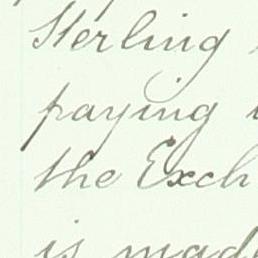 Sterling
paying
the Exch
is made